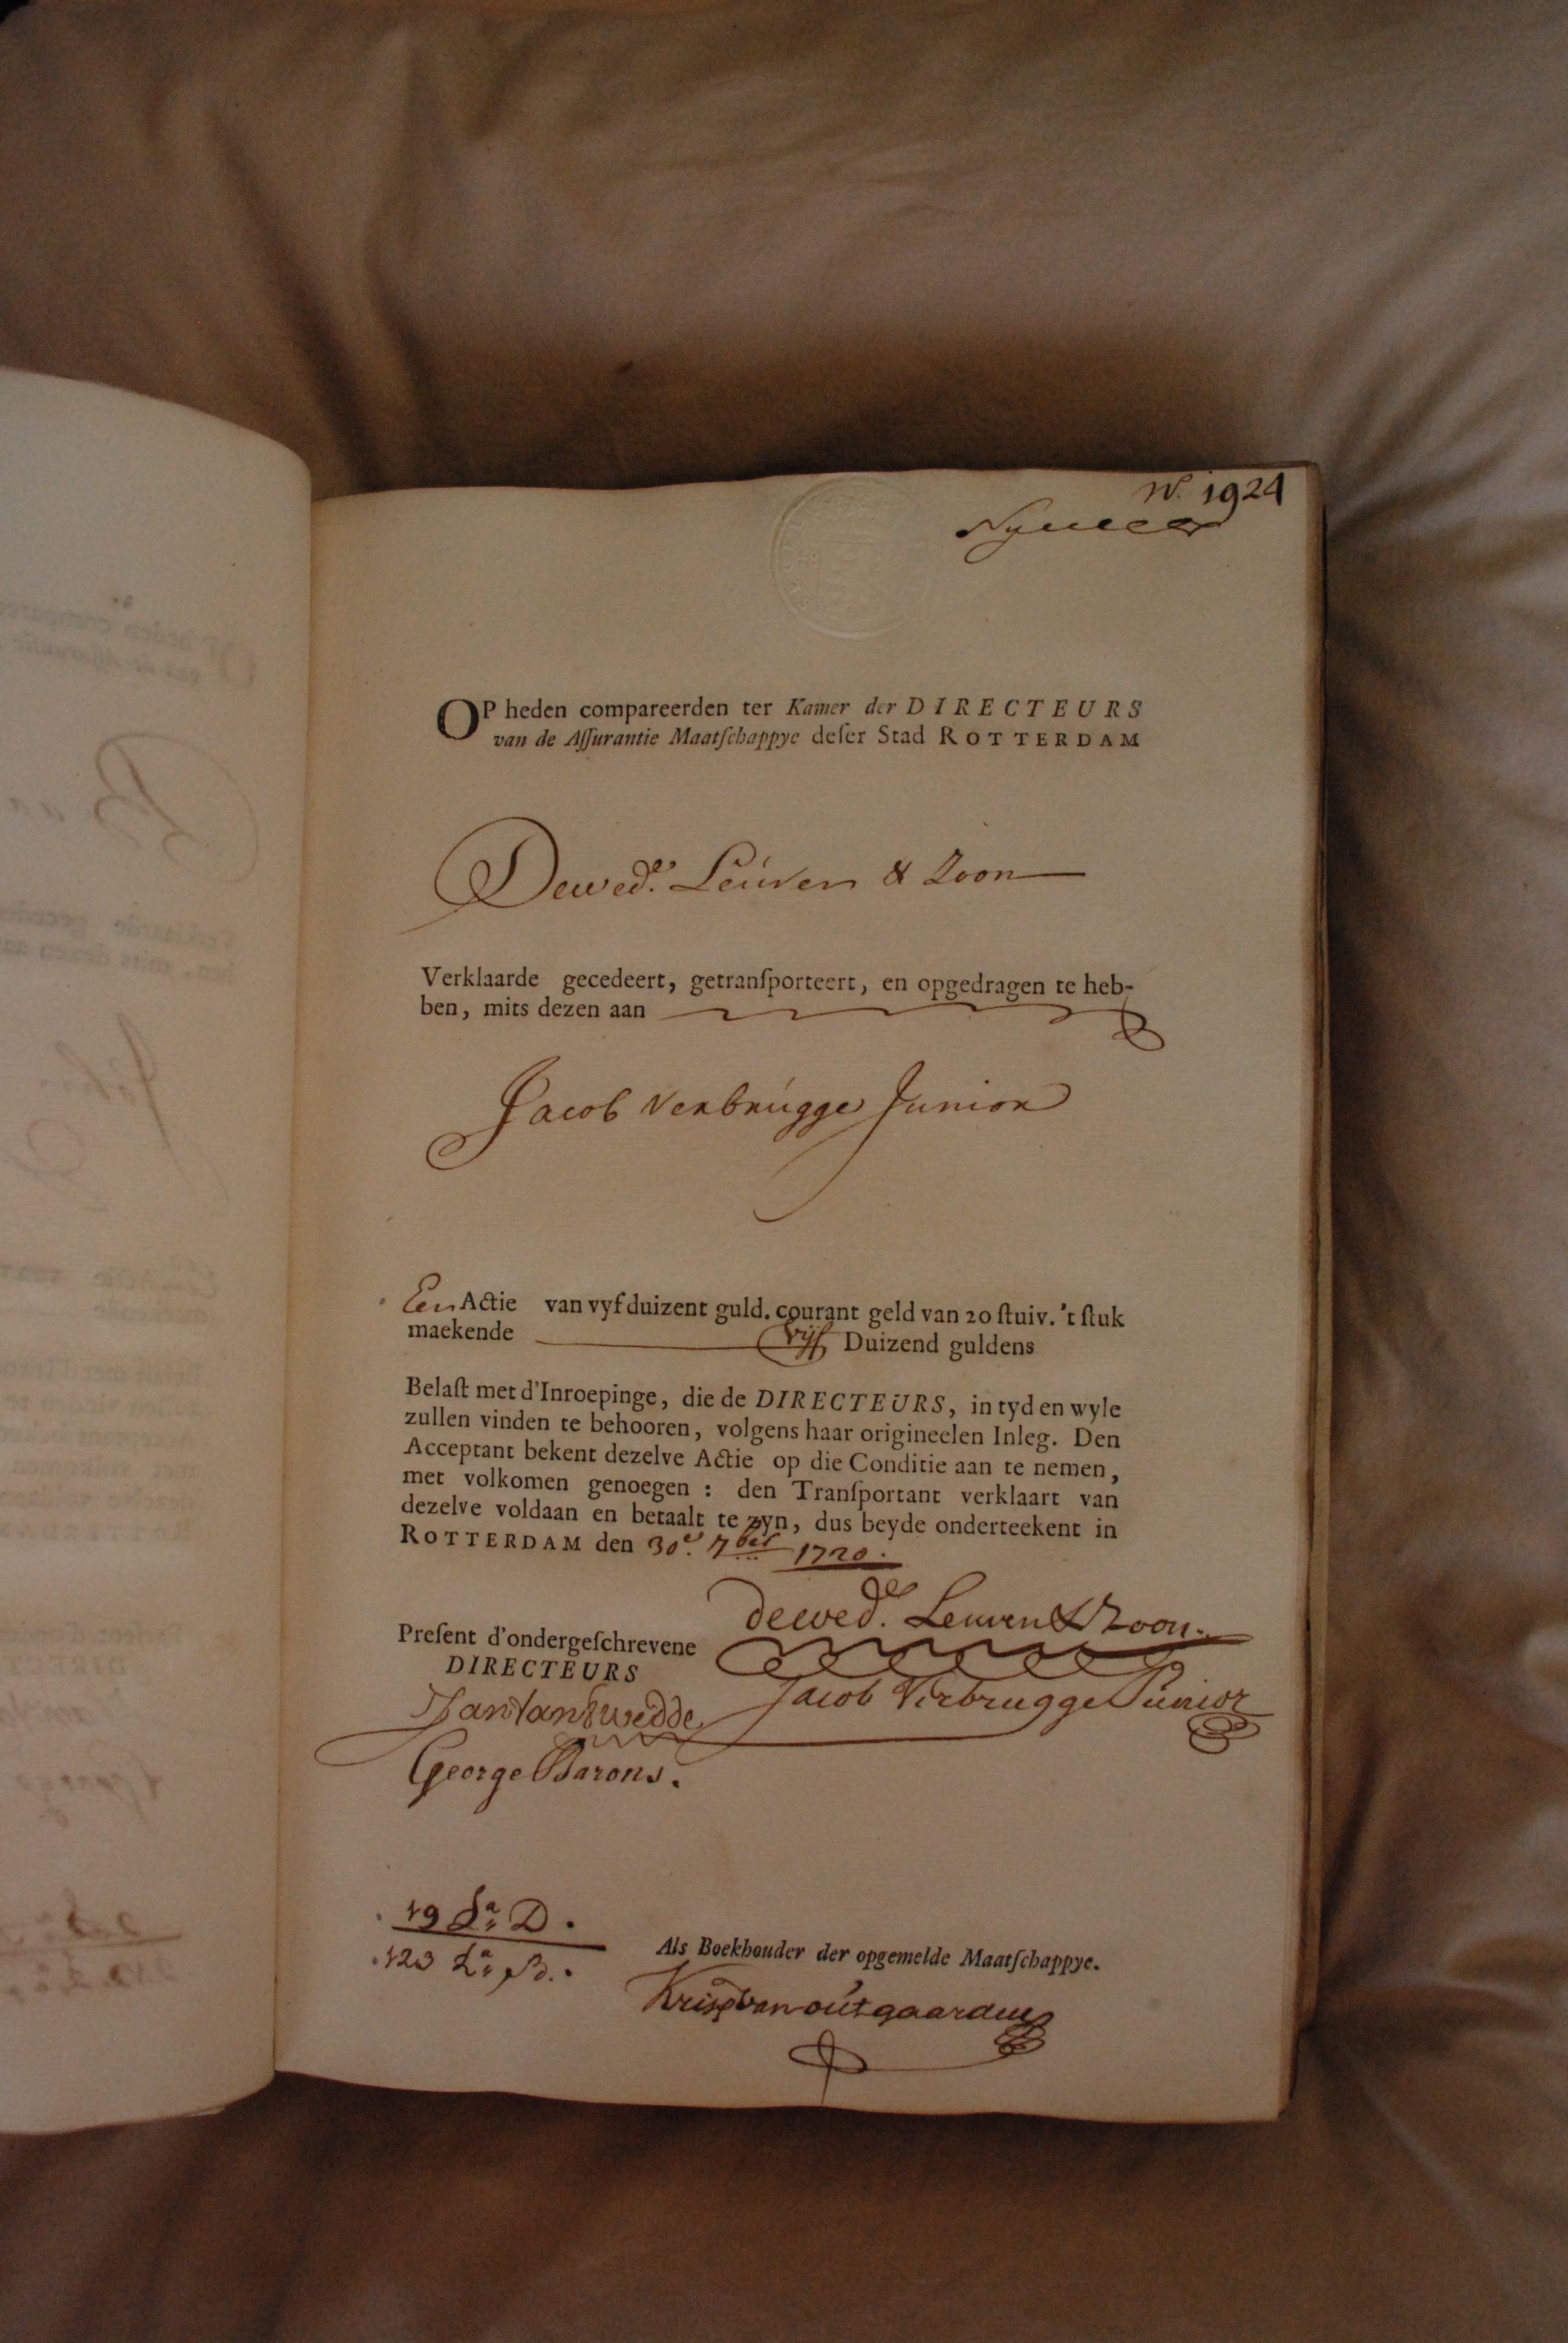 N.º 1924
OP heden compareerden ter Kamer der DIRECTEURS
van de Aſſurantie Maatſchappye deſer Stad ROTTERDAM
De wed.e Leúven & Zoon
Verklaarde gecedeert, getranſporteert, en opgedragen te heb-
ben, mits dezen aan
Jacob Verbrúgge Junior
Een Actie van vyf duizent guld. courant geld van 20 ſtuiv. 't ſtuk
maekende Vijf Duizend guldens
Belaſt met d'Inroepinge, die de DIRECTEURS, in tyd en wyle
zullen vinden te behooren, volgens haar origineelen Inleg. Den
Acceptant bekent dezelve Actie op die Conditie aan te nemen,
met volkomen genoegen : den Tranſportant verklaart van
dezelve voldaan en betaalt te zyn, dus beyde onderteekent in
ROTTERDAM den 30.e 7ber 1720.
de wed.e Leuven & Zoon.
Preſent d'ondergeſchrevene
DIRECTEURS
Jacob Verbrugge Junior
George Barons.
19 La D.
123 La B.
Als Boekhouder der opgemelde Maatſchappye.